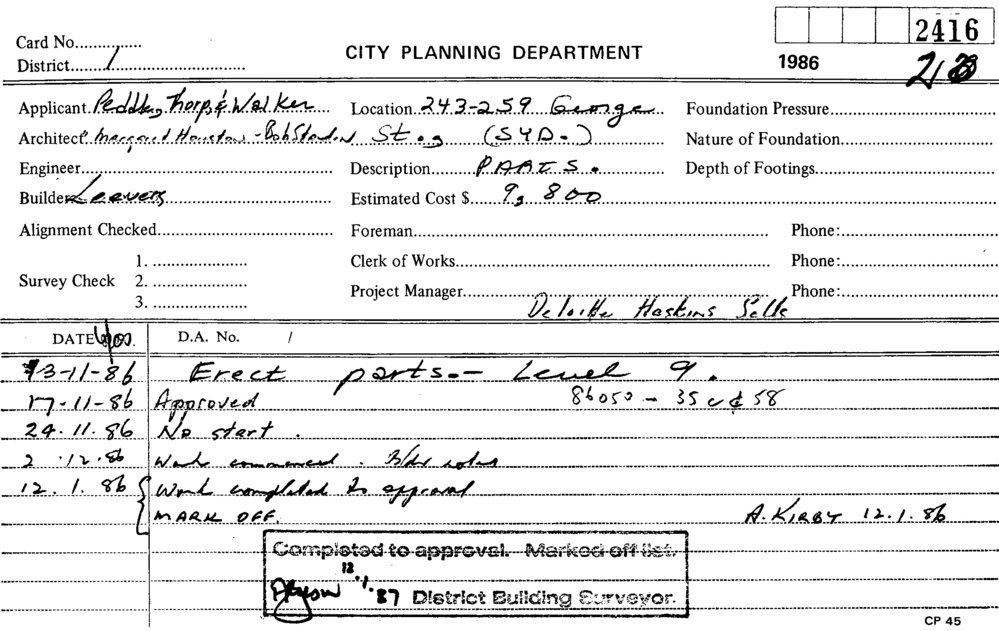 2416
Card No.
CITY PLANNING DEPARTMENT
District 1
1986
Applicant Peddle, Thorp & Walker Location 243-259 George Foundation Pressure
Architect Margaret Houston - Bob St., (SYD.) Nature of Foundation
Engineer Description PARTS. Depth of Footings
Builder Leavers Estimated Cost $ 9, 800
Alignment Checked Foreman Phone:
1. Clerk of Works Phone:
Survey Check 2.
3. Project Manager Deloitte Haskins Sells Phone:
DATE D.A. No. /
13-11-86 Erect parts.- Level 9.
17-11-86 Approved 86050 - 35 c & 58
24.11.86 No start.
2.12.86 Work commenced. Bldr notes
12.1.86 Work completed to approval
MARK OFF. A. KIRBY 12.1.86
Completed to approval. Marked off list.
12.1.87 District Building Surveyor.
CP 45